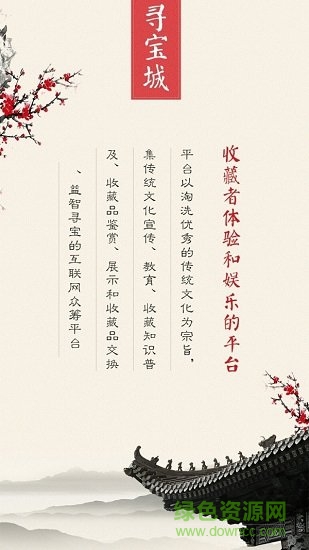 寻宝城
收藏者体验和娱乐的平台
平台以淘洗优秀的传统文化为宗旨，
集传统文化宣传、教育、收藏知识普
及、收藏品鉴赏、展示和收藏品交换
、益智寻宝的互联网众筹平台
绿色资源网
www.downcc.com